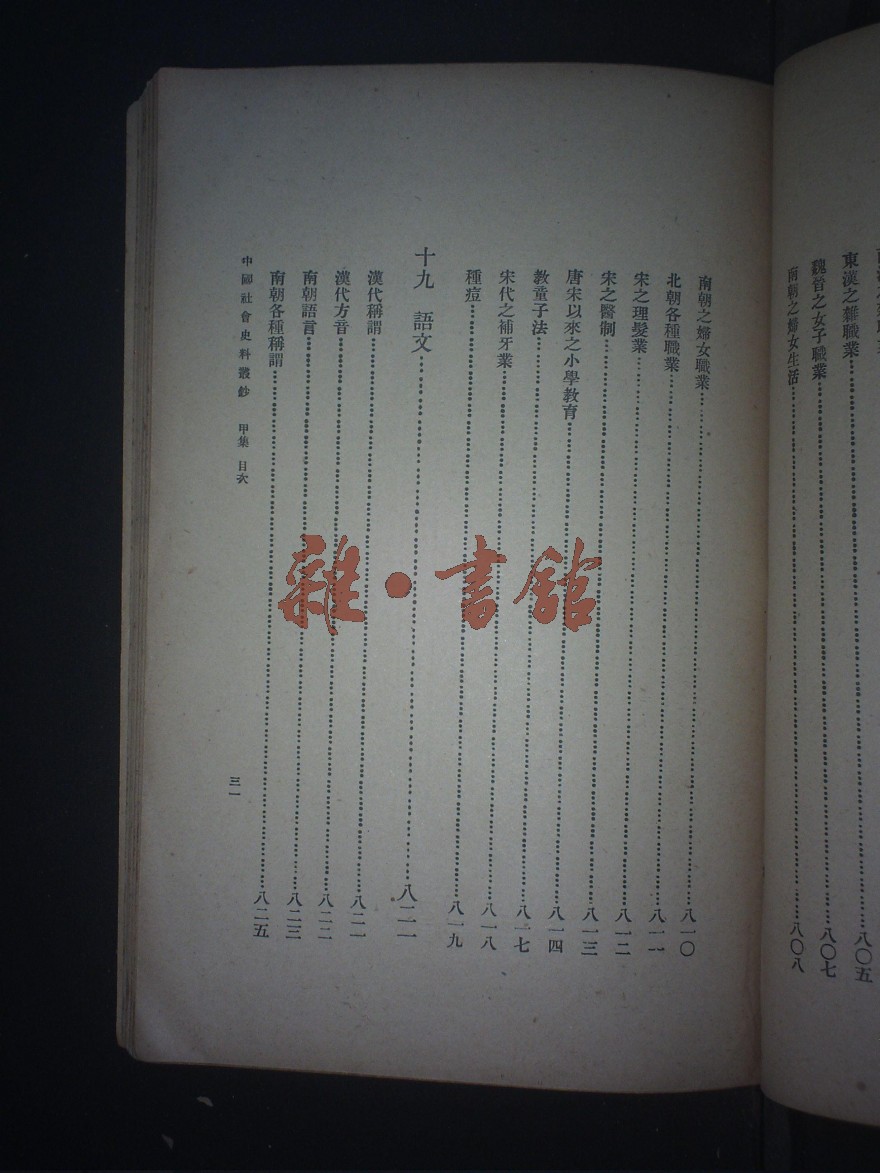 東漢之雜職業……八〇五
魏晉之女子職業……八〇七
南朝之婦女生活……八〇八
南朝之婦女職業……八一〇
北朝各種職業……八一一
宋之理髮業……八一二
宋之醫制……八一三
唐宋以來之小學教育……八一四
教童子法……八一七
宋代之補牙業……八一八
種痘……八一九
十九 語文……八二一
漢代稱謂……八二一
漢代方音……八二二
南朝語言……八二三
南朝各種稱謂……八二五
中國社會史料叢鈔 甲集 目次
三一
雜·書館